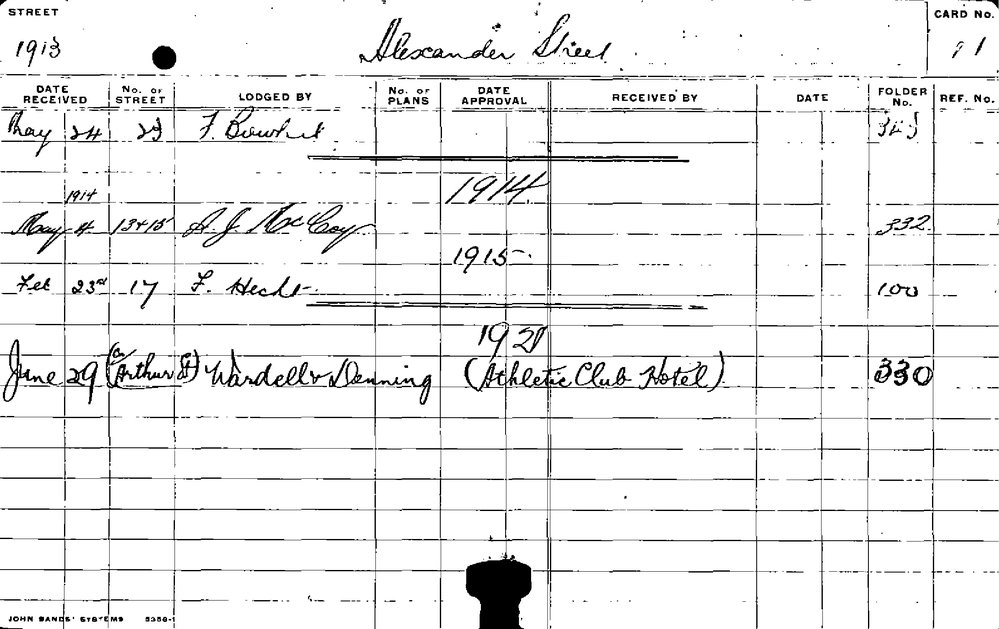 STREET CARD No.
1913 Alexander Street 91
DATE RECEIVED No. OF STREET LODGED BY No. OF PLANS DATE APPROVAL RECEIVED BY DATE FOLDER No. REF. No.
May 24 23 F.
1914
1914
May 4 13+15 A. J. McCoy 332
1915
Feb 23rd 17 F. Hecht 100
192
June 29 (Cr Arthur St) Wardell & Denning (Athletic Club Hotel) 330
JOHN SANDS' SYSTEMS